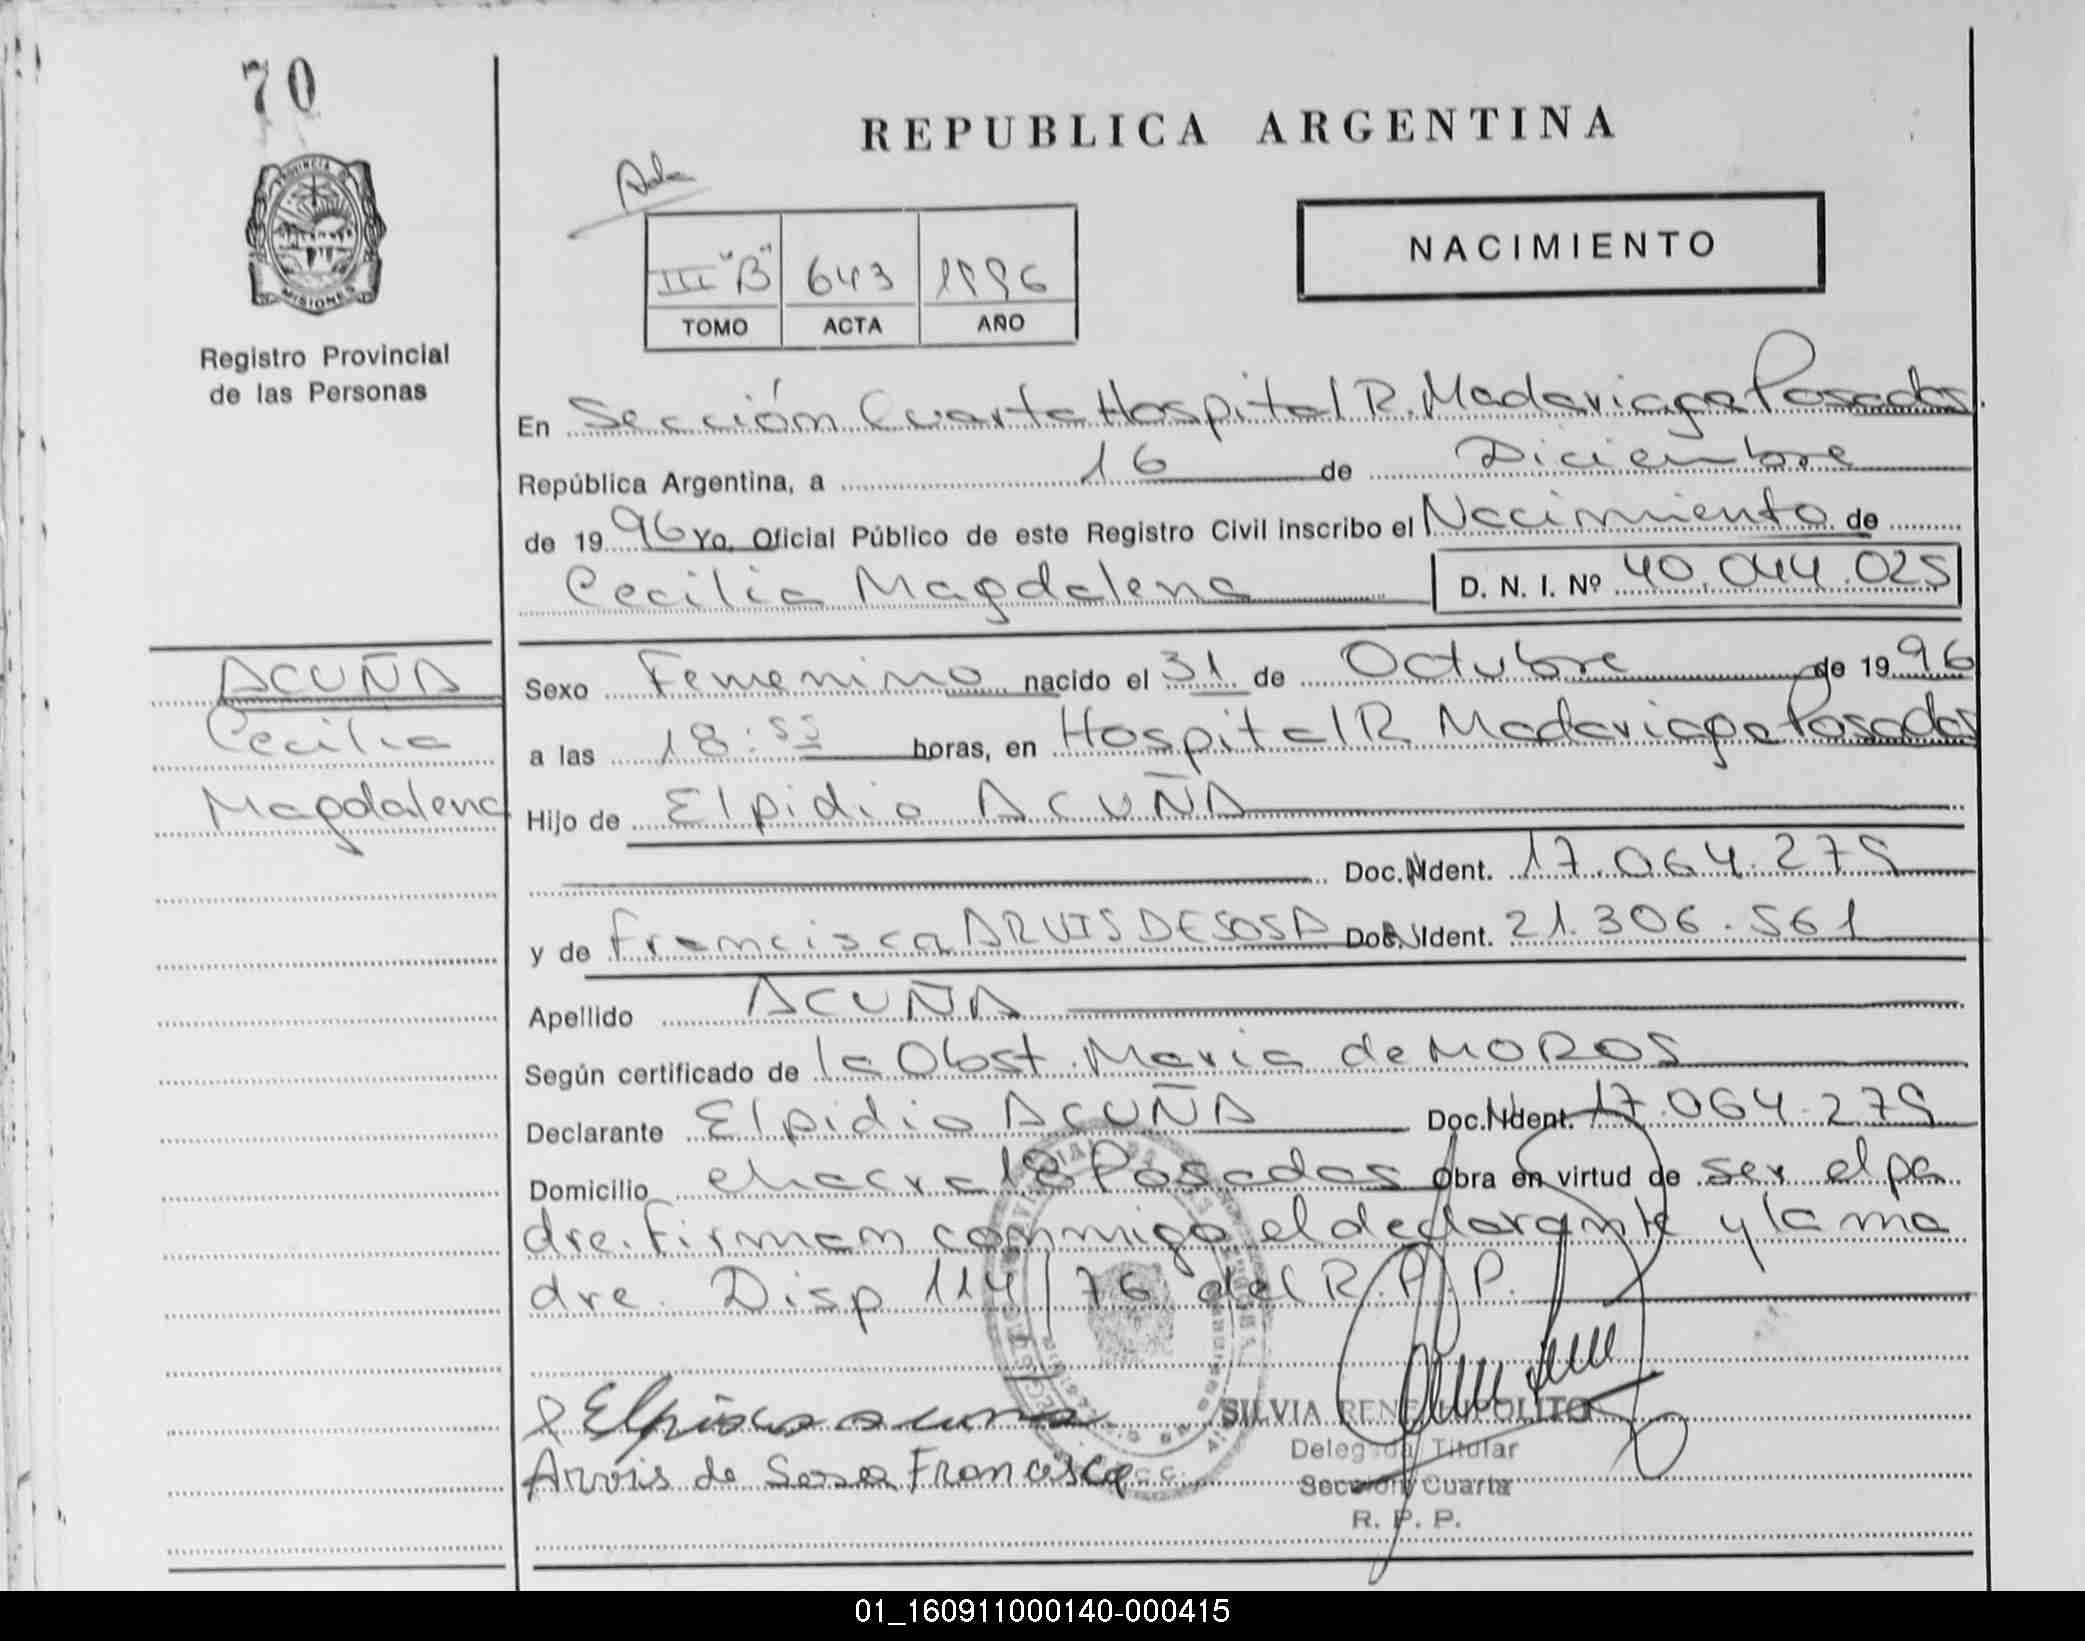 70
REPUBLICA ARGENTINA
PROVINCIA DE
MISIONES
Registro Provincial
de las Personas
NACIMIENTO
III "B" 643 1996
TOMO ACTA AÑO
En Sección Cuarta Hospital R. Madariaga Posadas.
República Argentina, a 16 de Diciembre
de 1996 Yo, Oficial Público de este Registro Civil inscribo el Nacimiento de
Cecilia Magdalena D. N. I. Nº 40.044.025
ACUÑA
Cecilia
Magdalena
Sexo Femenino nacido el 31 de Octubre de 1996
a las 18:55 horas, en Hospital R Madariaga Posadas
Hijo de Elpidio ACUÑA
Doc. Ident. 17.064.279
y de Francisca ARVIS DE SOSA Doc. Ident. 21.306.561
Apellido ACUÑA
Según certificado de la Obst. Maria de MOROS
Declarante Elpidio ACUÑA Doc. Ident. 17.064.279
Domicilio chacra 18 Posadas Obra en virtud de ser el pa
dre. Firman conmigo el declarante y la ma
dre. Disp 114/76 del R.P.P.
Elpidio acuna
Arvis de Sosa Francisca
SILVIA RENE HIPOLITO
Delegada Titular
Sección Cuarta
R. P. P.
01_160911000140-000415